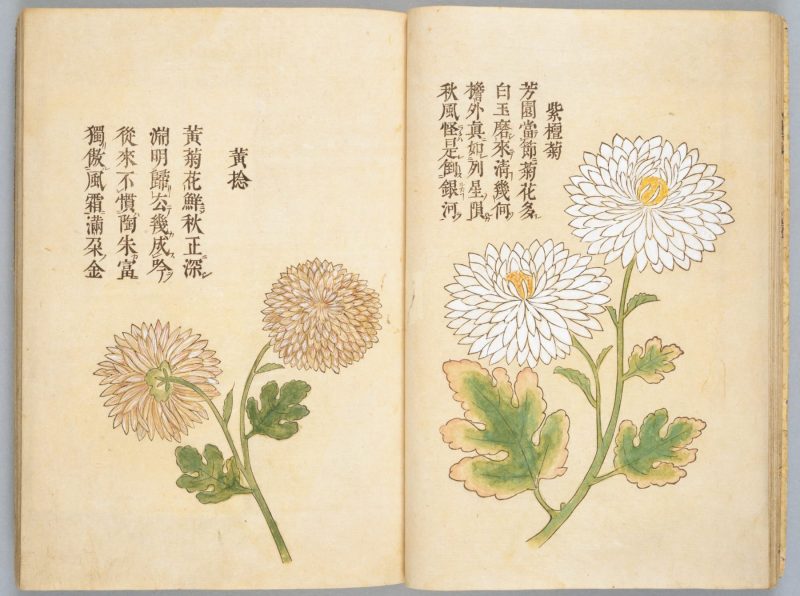 紫檀菊
芳園當節菊花多
白玉磨來清幾何
檐外真如列星隕
秋風怪是倒銀河
黃捻
黃菊花鮮秋正深
淵明歸去幾成吟
從來不慣陶朱富
獨傲風霜滿朶金